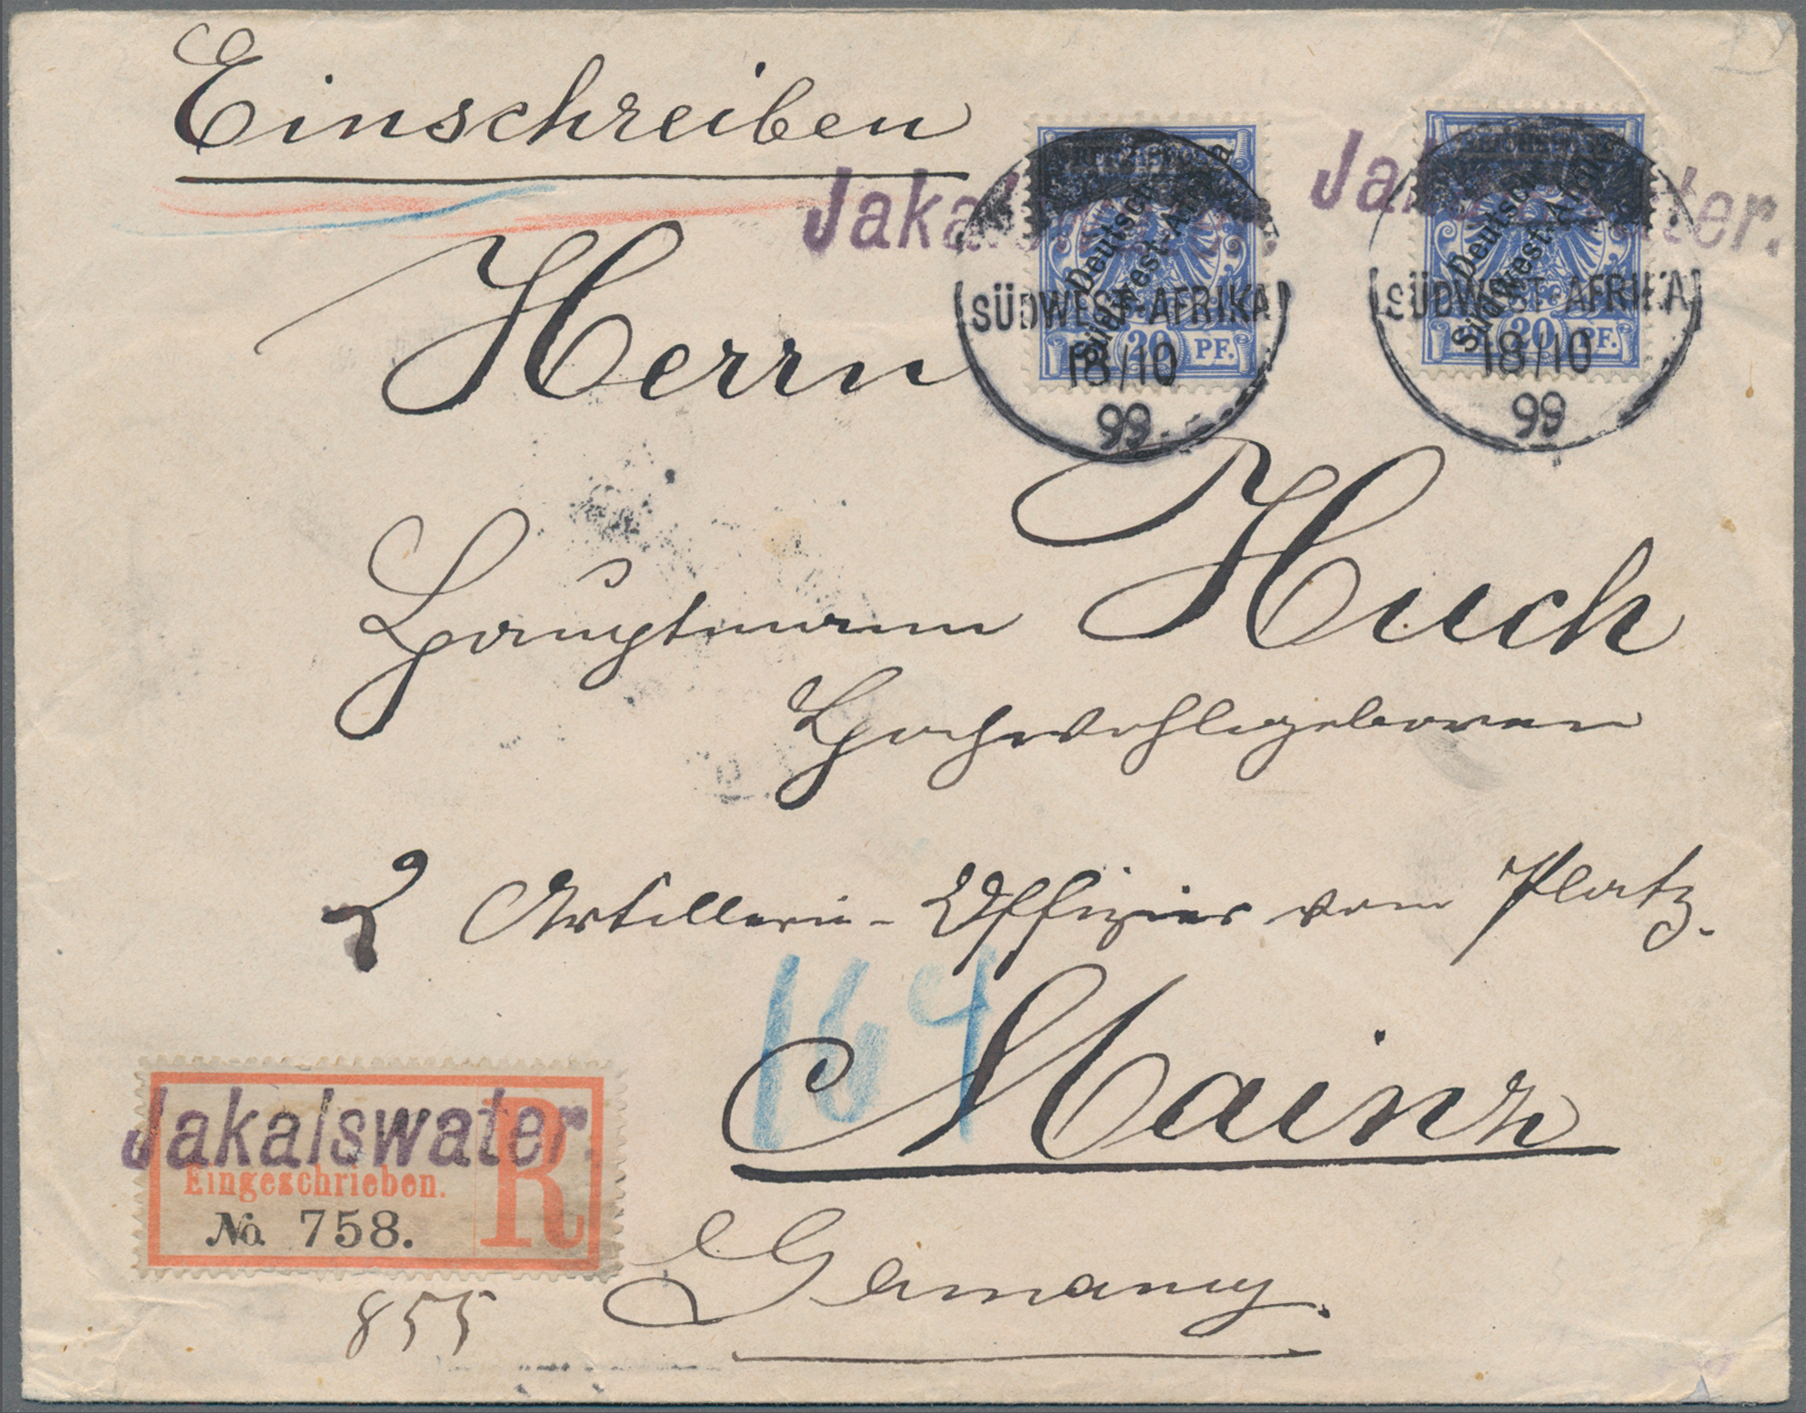 Einschreiben
Jakalswater.
REICHSPOST
Deutsch-
Südwest-Afrika
20 PF.
SÜDWEST-AFRIKA
18/10
99
Jakalswater.
REICHSPOST
Deutsch-
Südwest-Afrika
20 PF.
SÜDWEST-AFRIKA
18/10
99
Herrn
Hauptmann Huch
Hochwohlgeboren
Artillerie-Offizier vom Platz.
164
Mainz
Jakalswater.
Eingeschrieben. R
No. 758.
Germany.
855